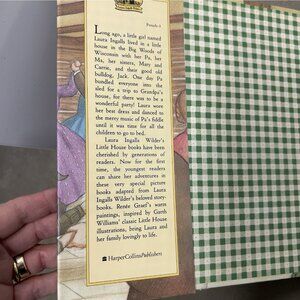 Long ago, a little girl named
Laura Ingalls lived in a little
house in the Big Woods of
Wisconsin with her Pa, her
Ma, her sisters, Mary and
Carrie, and their good old
bulldog, Jack. One day Pa
bundled everyone into the
sled for a trip to Grandpa's
house, for there was to be a
wonderful party! Laura wore
her best dress and danced to
the merry music of Pa's fiddle
until it was time for all the
children to go to bed.
Laura Ingalls Wilder's
Little House books have been
cherished by generations of
readers. Now for the first
time, the youngest readers
can share her adventures in
these very special picture
books adapted from Laura
Ingalls Wilder's beloved story-
books. Renée Graef's warm
paintings, inspired by Garth
Williams' classic Little House
illustrations, bring Laura and
her family lovingly to life.
HarperCollinsPublishers